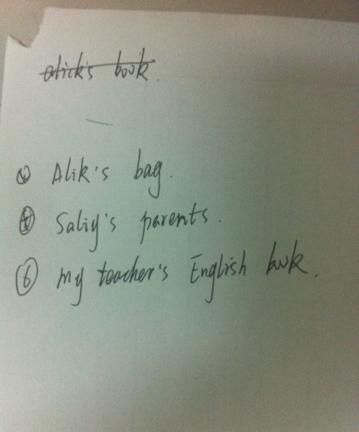 alick's book.
Alik's bag.
Saliy's parents.
⑥ my teacher's English book.